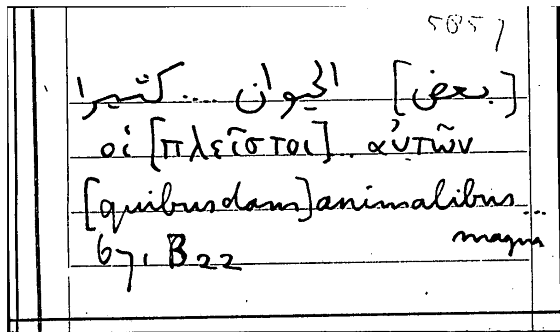 5851
[بعض] الحيوان .... كثيرا
οἱ [πλεῖστοι] .. αὐτῶν
[quibusdam] animalibus ...
magna
67, B22